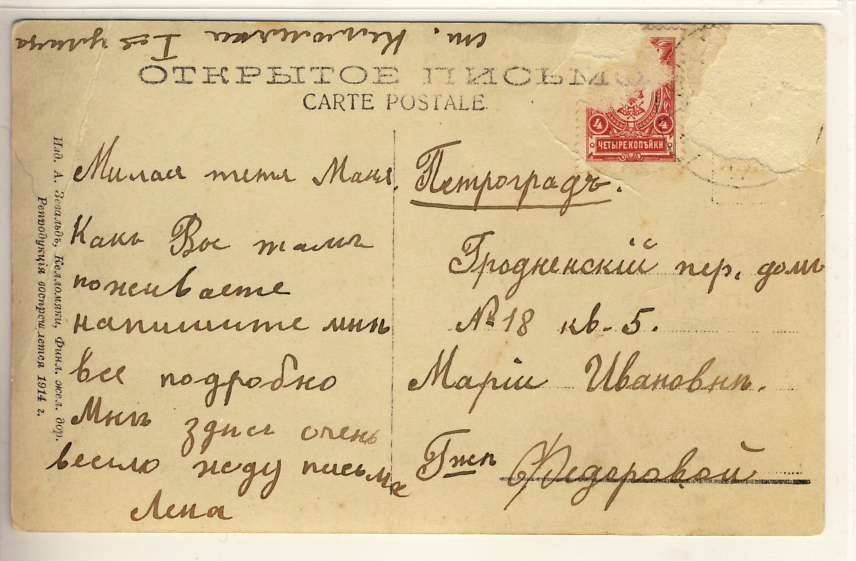 ст. Келломяки I ая улица
ОТКРЫТОЕ ПИСЬМО
CARTE POSTALE
4 4
ЧЕТЫРЕ КОПѢЙКИ
Изд. А. Зевальдъ, Келломяки, Финл. жел. дор.
Репродукція воспрещается 1914 г.
Милая тетя Маня.
Какъ Вы тамъ
поживаете
напишите мнѣ
все подробно
Мнѣ здѣсь очень
весело жду письма
Лена
Петроградъ.
Гродненскій пер. домъ
№ 18 кв. 5.
Маріи Ивановнѣ.
Гжѣ Федоровой